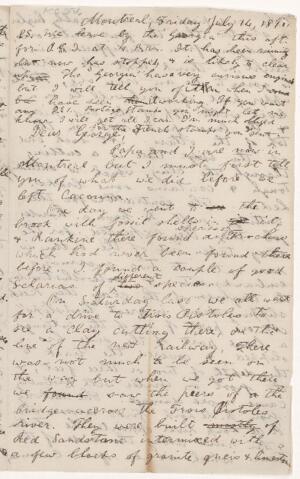 Montreal, Friday July 14, 1871
leave by the Georgia this aft.
for at 4 P.M. It has been raining
but now has stopped, & is likely to clear
The Georgia has a very curious engine
but I will tell you of it when I
be have been If you want
any stamps you might let me
know. I will get all I can. I'm much obliged
for the French stamps you sent
Dear George,
Papa and I are now in
Montreal, but I must first tell
you of what we did before we
left Cacouna.
One day we went to the
brook with fossil shells in it,
& Rankine there found a
which had never been found there
before. I found a couple of good
of different species.
On Saturday last we all went
for a drive to Trois Pistoles to
see a clay cutting there, on the
line of the new Railway. There
was not much to be seen on
the way but when we got there
we found saw the piers of the
bridge across the Trois Pistoles
river. They were built mostly of
Red Sandstone intermixed with
a few blocks of granite, gneis & limestone